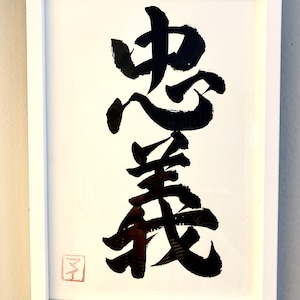 忠義
マイ